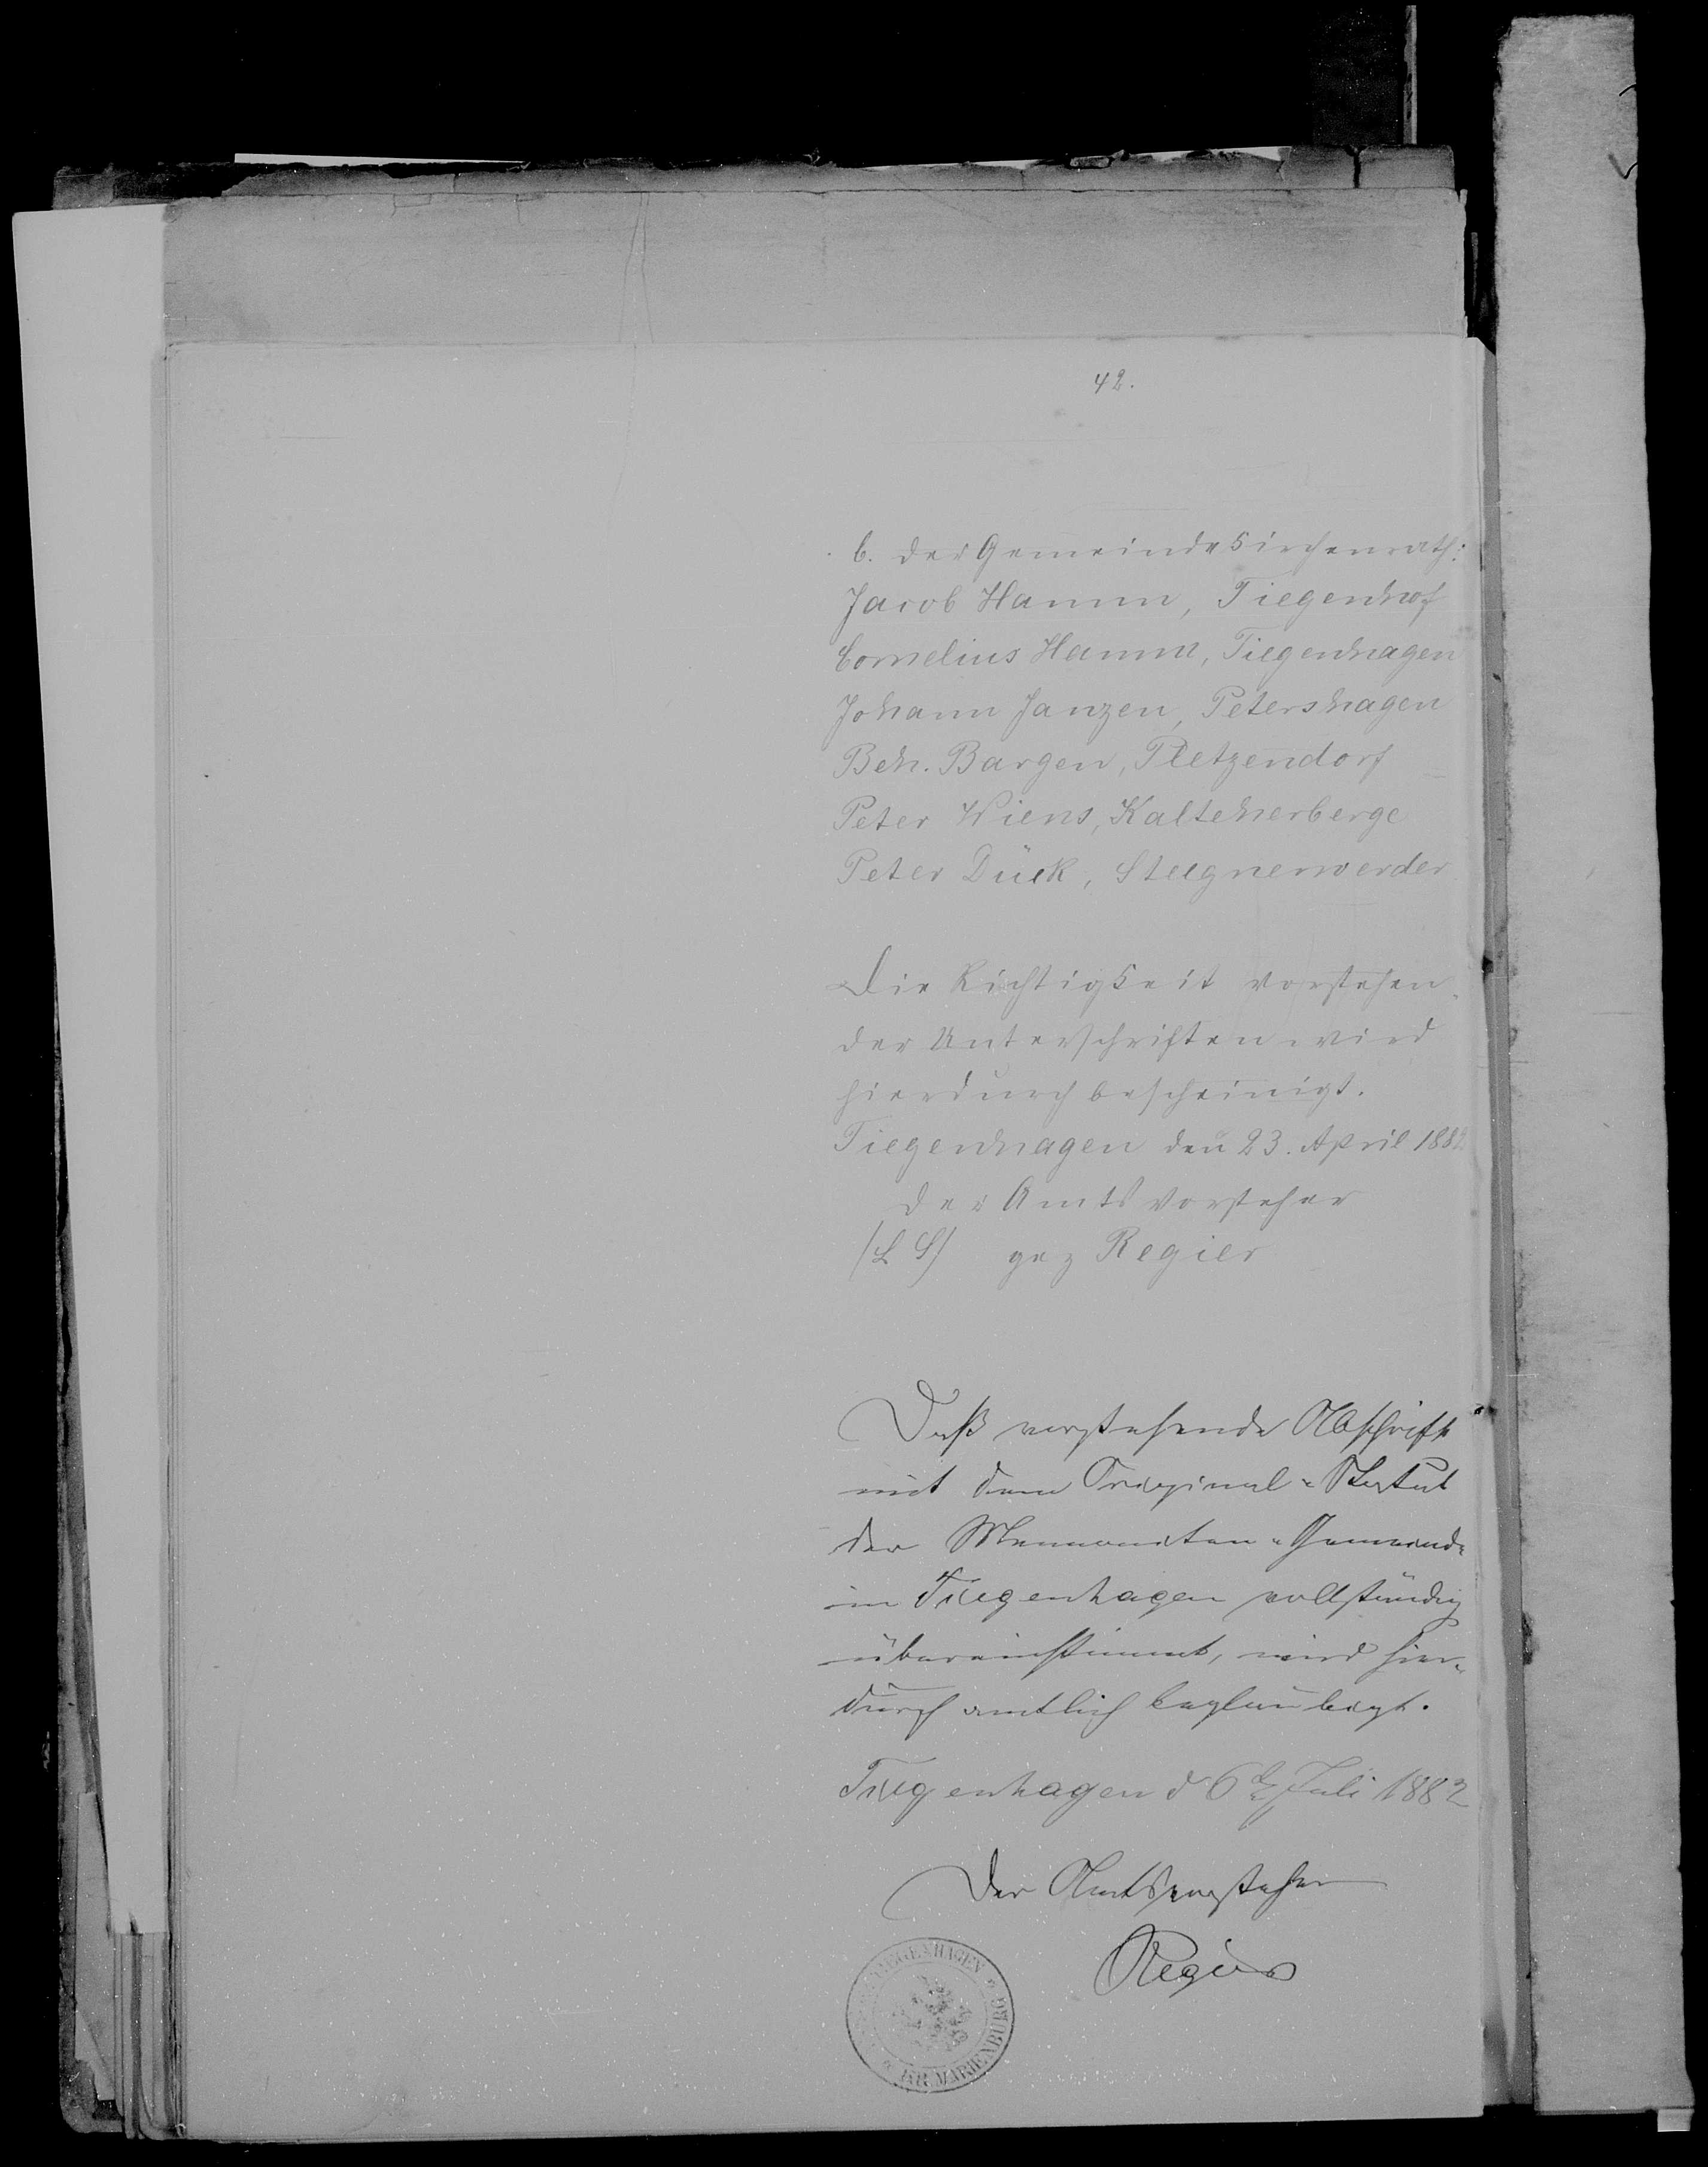 42.
b. der Gemeindekirchenrath:
Jacob Hamm, Tiegenhof
Cornelius Hamm, Tiegenhagen
Johann Janzen, Petershagen
Beh. Bargen, Pletzendorf
Peter Wiens, Kalteherberge
Peter Dück, Steegnerwerder
Die Richtigkeit vorstehen-
der Unterschriften wird
hierdurch bescheinigt.
Tiegenhagen den 23. April 1882
Der Amtsvorsteher
(L S) gez Regier
Daß vorstehende Abschrift
mit dem Original-Statut
der Mennoniten-Gemeinde
in Tiegenhagen vollständig
übereinstimmt, wird hier-
durch amtlich beglaubigt.
Tiegenhagen d 6ten Juli 1882
Der Amtsvorsteher
Regier
TIEGENHAGEN
KR. MARIENBURG